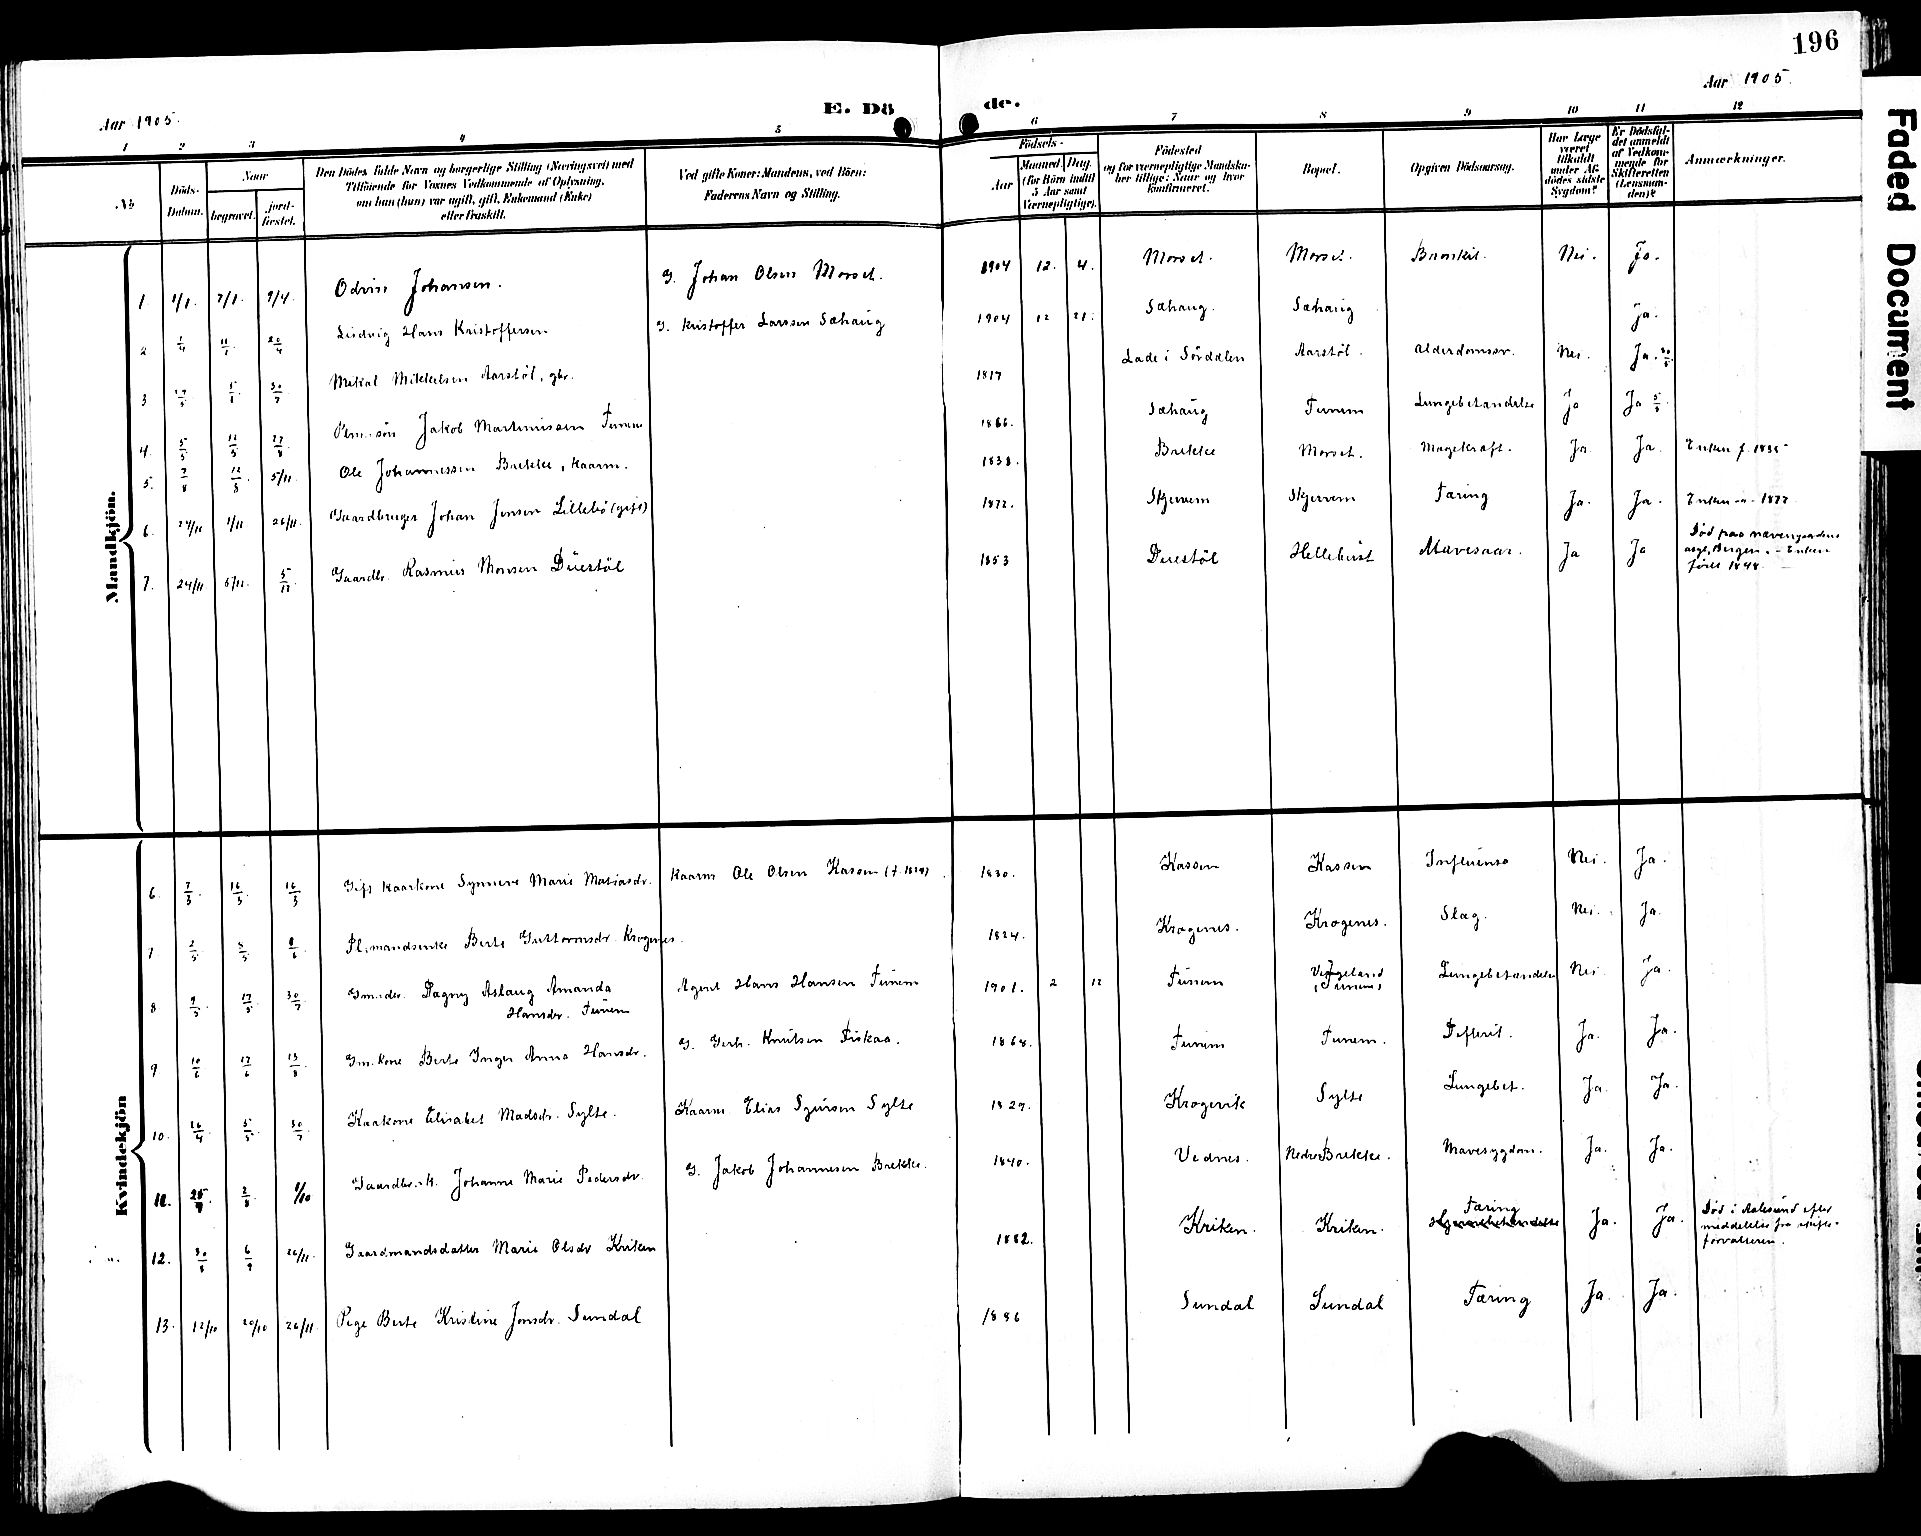 196
Aar 1905.
E. Dö
de.
Aar 1905.
1 2 3 4 5 6 7 8 9 10 11 12
No
Döds-
Datum.
Naar
begravet.
jord-
fæstet.
Den Dödes fulde Navn og borgerlige Stilling (Næringsvei) med
Tilföiende for Voxnes Vedkommende af Oplysning,
om han (hun) var ugift, gift, Enkemand (Enke)
eller fraskilt.
Ved gifte Koner: Mandens, ved Börn:
Faderens Navn og Stilling.
Födsels-
Aar
Maaned. Dag.
(for Börn indtil
5 Aar samt
Værnepligtige).
Födested
og for værnepligtige Mandska-
ber tillige: Naar og hvor
konfirmeret.
Bopæl.
Opgiven Dödsaarsag.
Har Læge
været
tilkaldt
under Af-
dödes sidste
Sygdom?
Er Dödsfal-
det anmeldt
af Vedkom-
mende for
Skifteretten
(Lensman-
den)?
Anmærkninger.
Mandkjön.
1 1/1. 7/1. 9/4. Odvin Johansen. G. Johan Olsen Morset. 1904 12. 4. Morset. Morset. Bronkit. Nei. Ja.
2 1/4 11/1. 20/4 Ludvig Hans Kristoffersen G. Kristoffer Larssen Sæhaug 1904 12 21. Sæhaug. Sæhaug Ja.
3 Mikal Mikkelsen Aarstöl, gbr. 1817 Lade i Sörddalen Aarstöl. Alderdomssv. Nei. Ja.
4. 5/5 12/5 Jakob Martinussen Funem 1866. Sæhaug Funem Lungebetændelse Ja Ja
5. 7/8 12/8 5/11. Ole Johannessen Brekke, kaarm. 1838. Brekke Morset. Magekræft. Ja Ja. Enken f. 1835
6. 1/11 26/11. Gaardbruger Johan Jensen Lillebö (gift) 1872. Skjervem Skjervem Tæring Ja. Ja. Enken - " - 1877
7. 24/11 5/11. Gaardbr. Rasmus Monsen Duestöl 1853 Duestöl Hellehust Mavesaar. Ja Ja Död paa
Bergen. - Enken
födt 1848.
Kvindekjön
6. 7/3 16/3 16/3 Gift kaarkone Synneve Marie Matiasdr. Kaarm Ole Olsen Kassen (f. 1829) 1830. Kassen Kassen Influensa Nei. Ja.
7 2/5 8/5 8/6 Pl.mandsenke Berte Guttormsdr. Krogenes. 1824. Krogenes. Krogenes. Slag. Nei. Ja.
8 9/5 17/5 30/7 Gm.dr. Dagny Aslaug Amanda
Hansdr. Funem Agent Hans Hansen Funem 1901. 2 12 Funem Vegeland
(Funem) Lungebetændelse Nei. Ja.
9 10/6 17/6 13/8 Gm. kone Berte Inger Anna Hansdr. G. Gerh. Knutsen Fiskaa. 1868. Funem Funem. Difterit. Ja. Ja.
10. 26/4 5/5 30/7 Kaarkone Elisabet Madsdr. Sylte. Kaarm. Elias Sjursen Sylte 1829. Krogevik Sylte Lungebet. Ja. Ja.
11. 2/8 1/10 Gaardbr.k. Johanne Marie Pedersdr. G. Jakob Johannesen Brekke. 1840. Vednes. Nedre Brekke. Mavesygdom. Ja. Ja.
12. 30/8 6/9 26/11. Gaardmandsdatter Marie Olsdr Kriken 1882. Kriken. Kriken. Tæring
Ja. Ja. Död i Aalesund efter
meddelelse fra skifte-
forvalteren.
13. 12/10 20/10 26/11. Pige Berte Kristine Jonsdr. Sundal 1886 Sundal Sundal Tæring Ja. Ja.
Faded Document